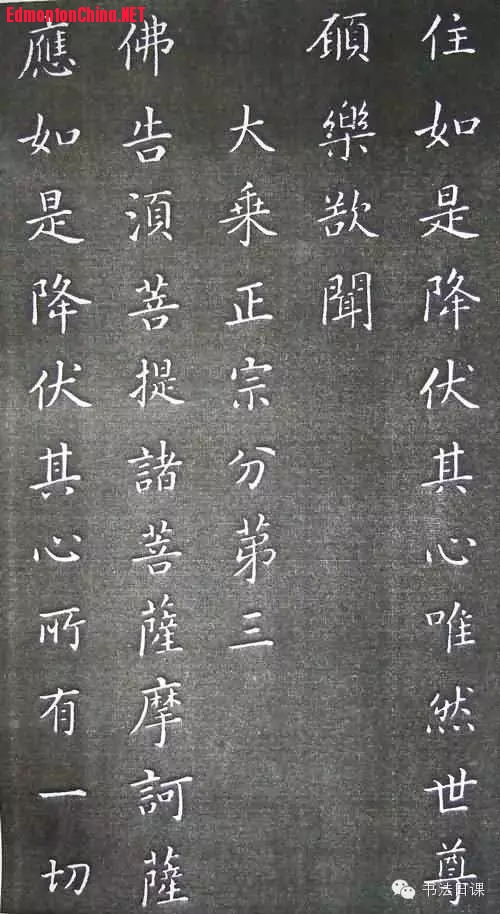 EdmontonChina.NET
住如是降伏其心唯然世尊
願樂欲聞
大乗正宗分苐三
佛告湏菩提諸菩薩摩訶薩
應如是降伏其心所有一切
书法日课